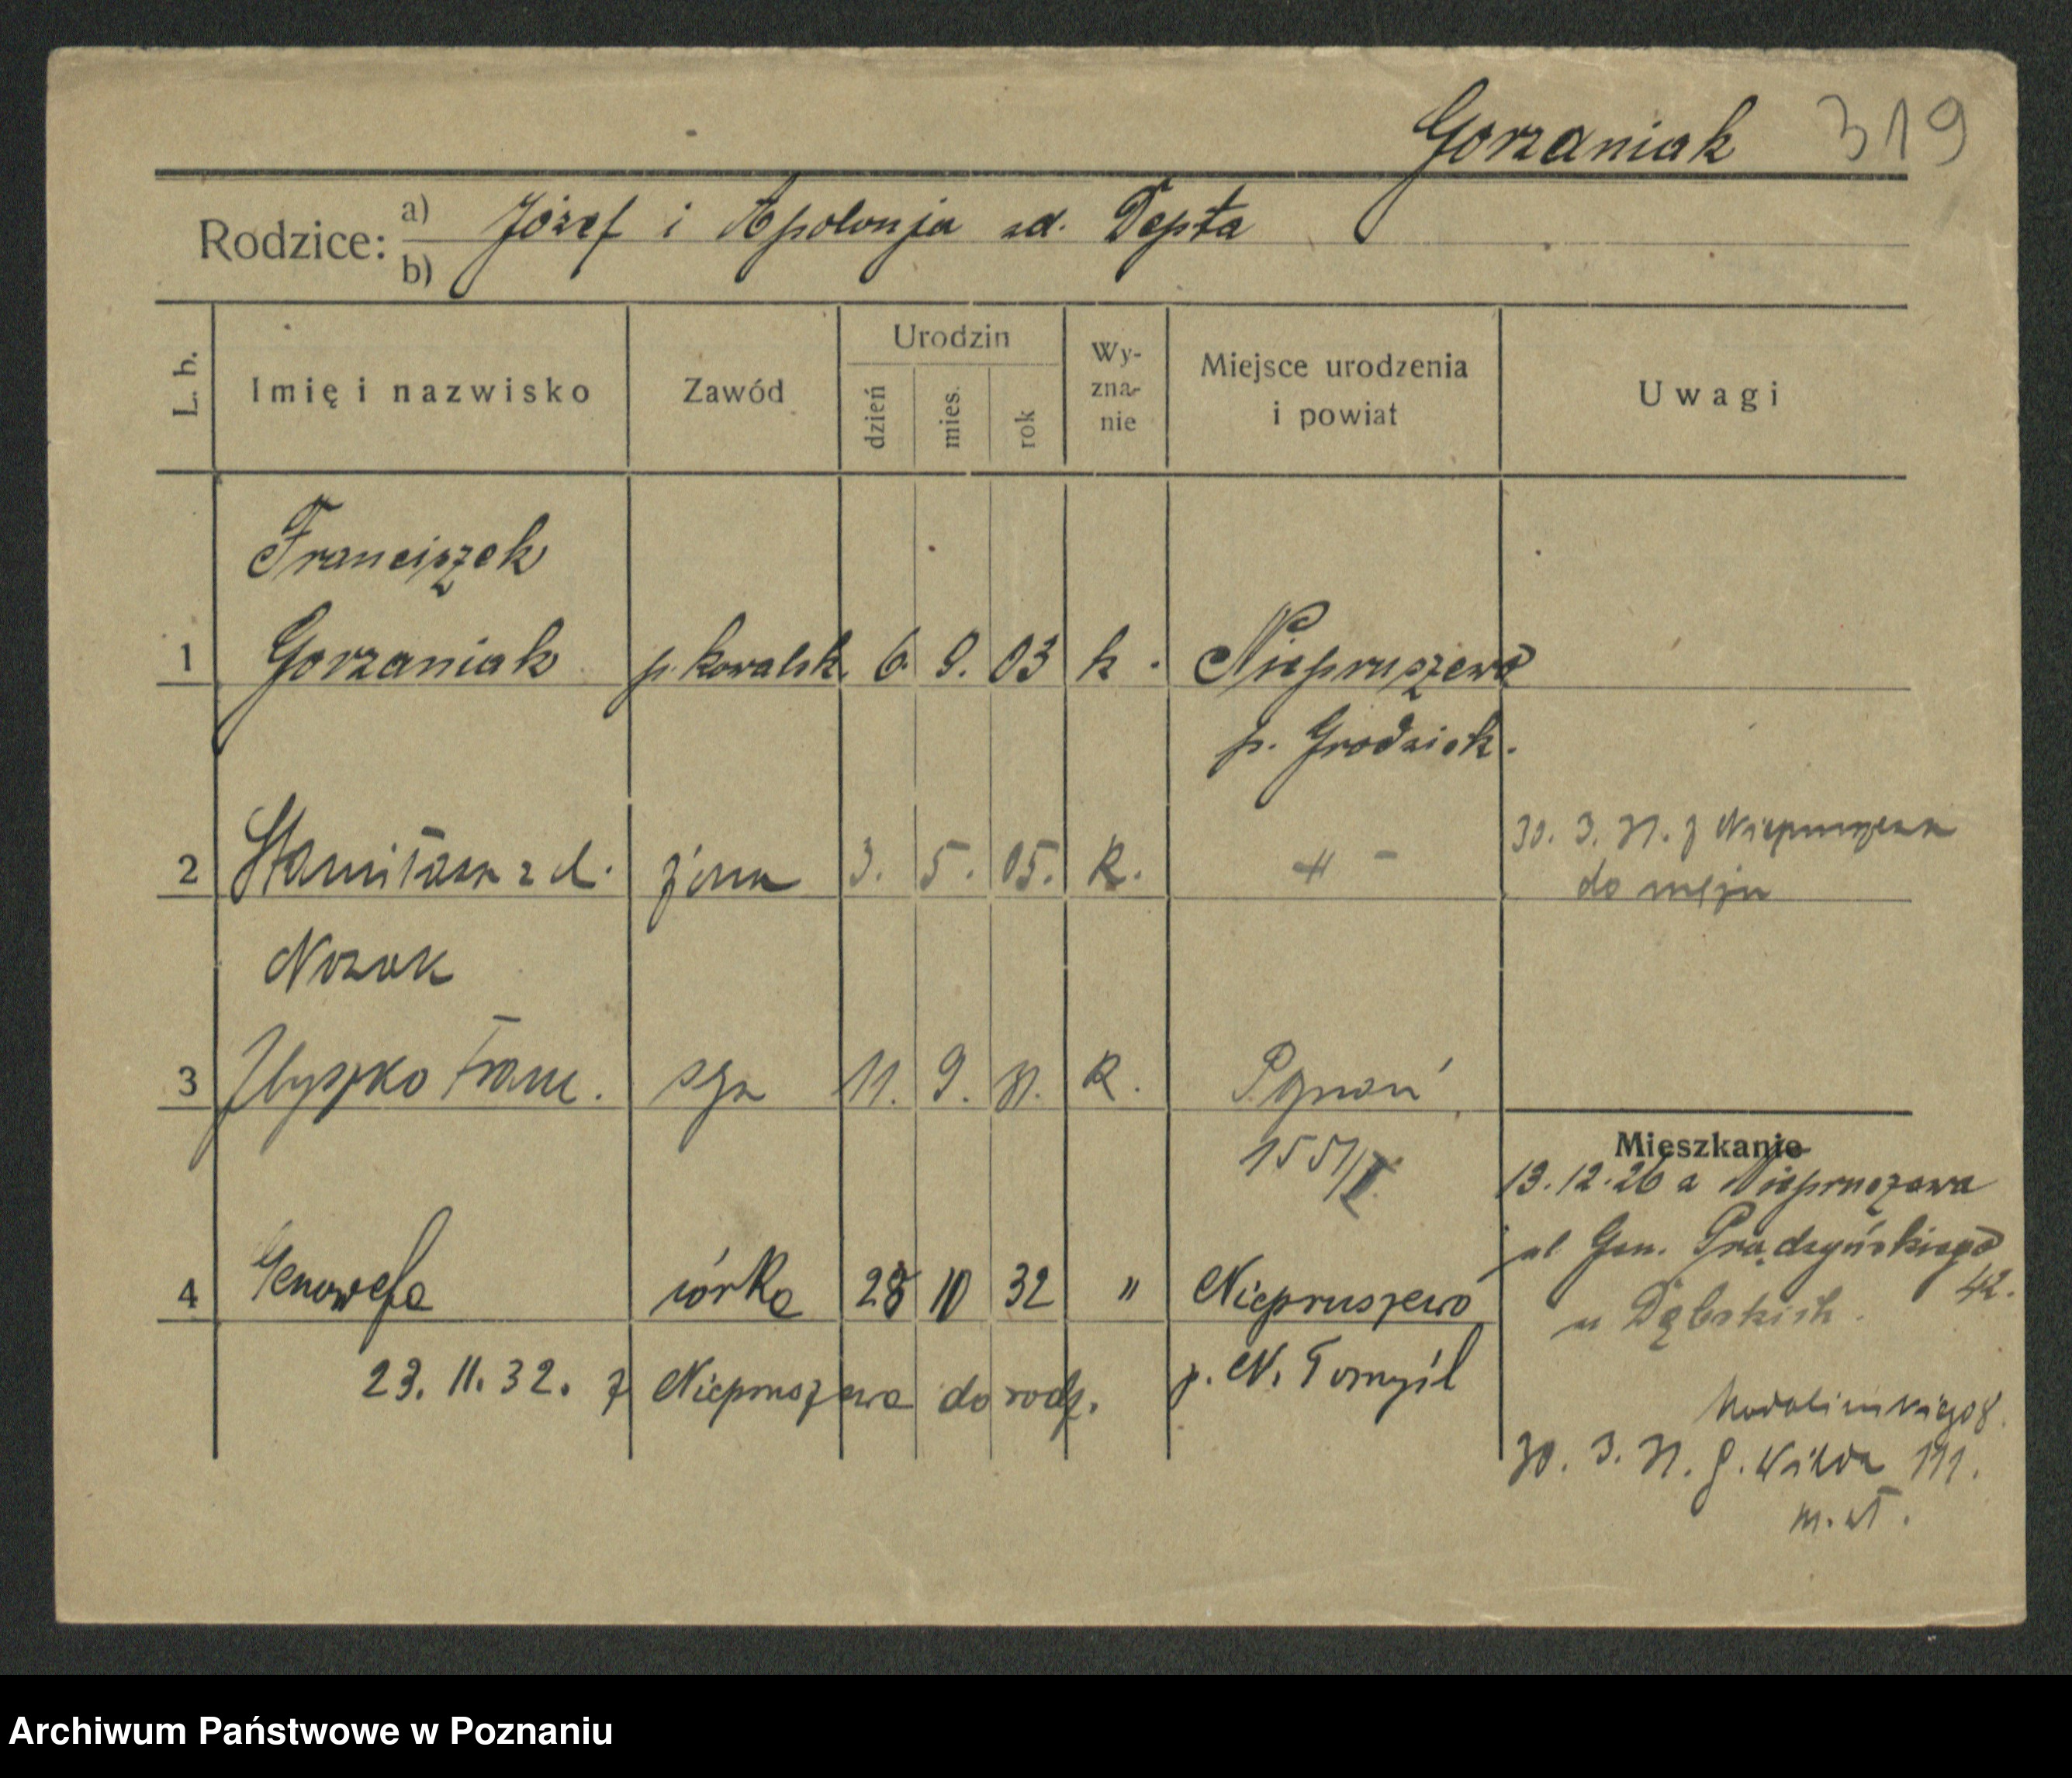 Gorzaniak 319
Rodzice: a) b) Józef i Apolonja zd. Depta
L. b.
Imię i nazwisko
Zawód
Urodzin
dzień
mies.
rok
Wy-
zna-
nie
Miejsce urodzenia
i powiat
Uwagi
Franciszek
1 Gorzaniak p. kowalsk. 6. 9. 03 k. Niepruszewo
p. Grodzisk.
2 Stanisława z d. żona 3. 5. 05. k. - " - 30. 3. 31. z Niepruszewa
do męża
Nozak
3 Zbyszko Franc. syn 11. 9. 31. k. Poznań
Mieszkanie
13.12.26 z Niepruszewa
ul Gen. Prądzyńskiego
42.
u Dąbskich.
4 Genowefa córka 28 10 32 " Niepruszewo
23. 11. 32. z Niepruszewa do rodz. p. N. Tomyśl
30. 3. 31. G. Wilda 111.